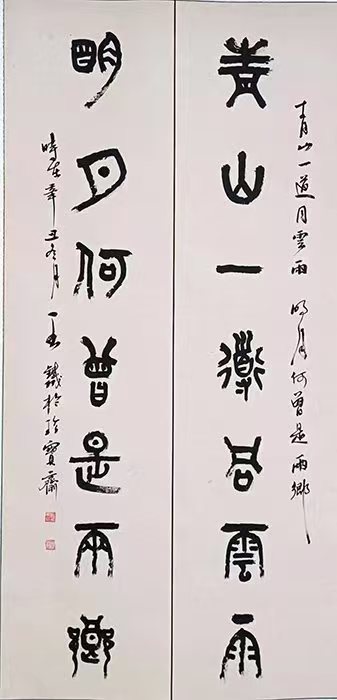 青山一道同雲雨 明月何曾是兩鄉
青山一道同雲雨
明月何曾是兩鄉
時在辛丑冬月 鐵於珍寶齋